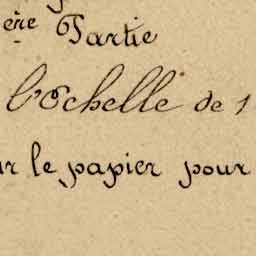 ère Partie
l'Echelle de 1
ur le papier pour